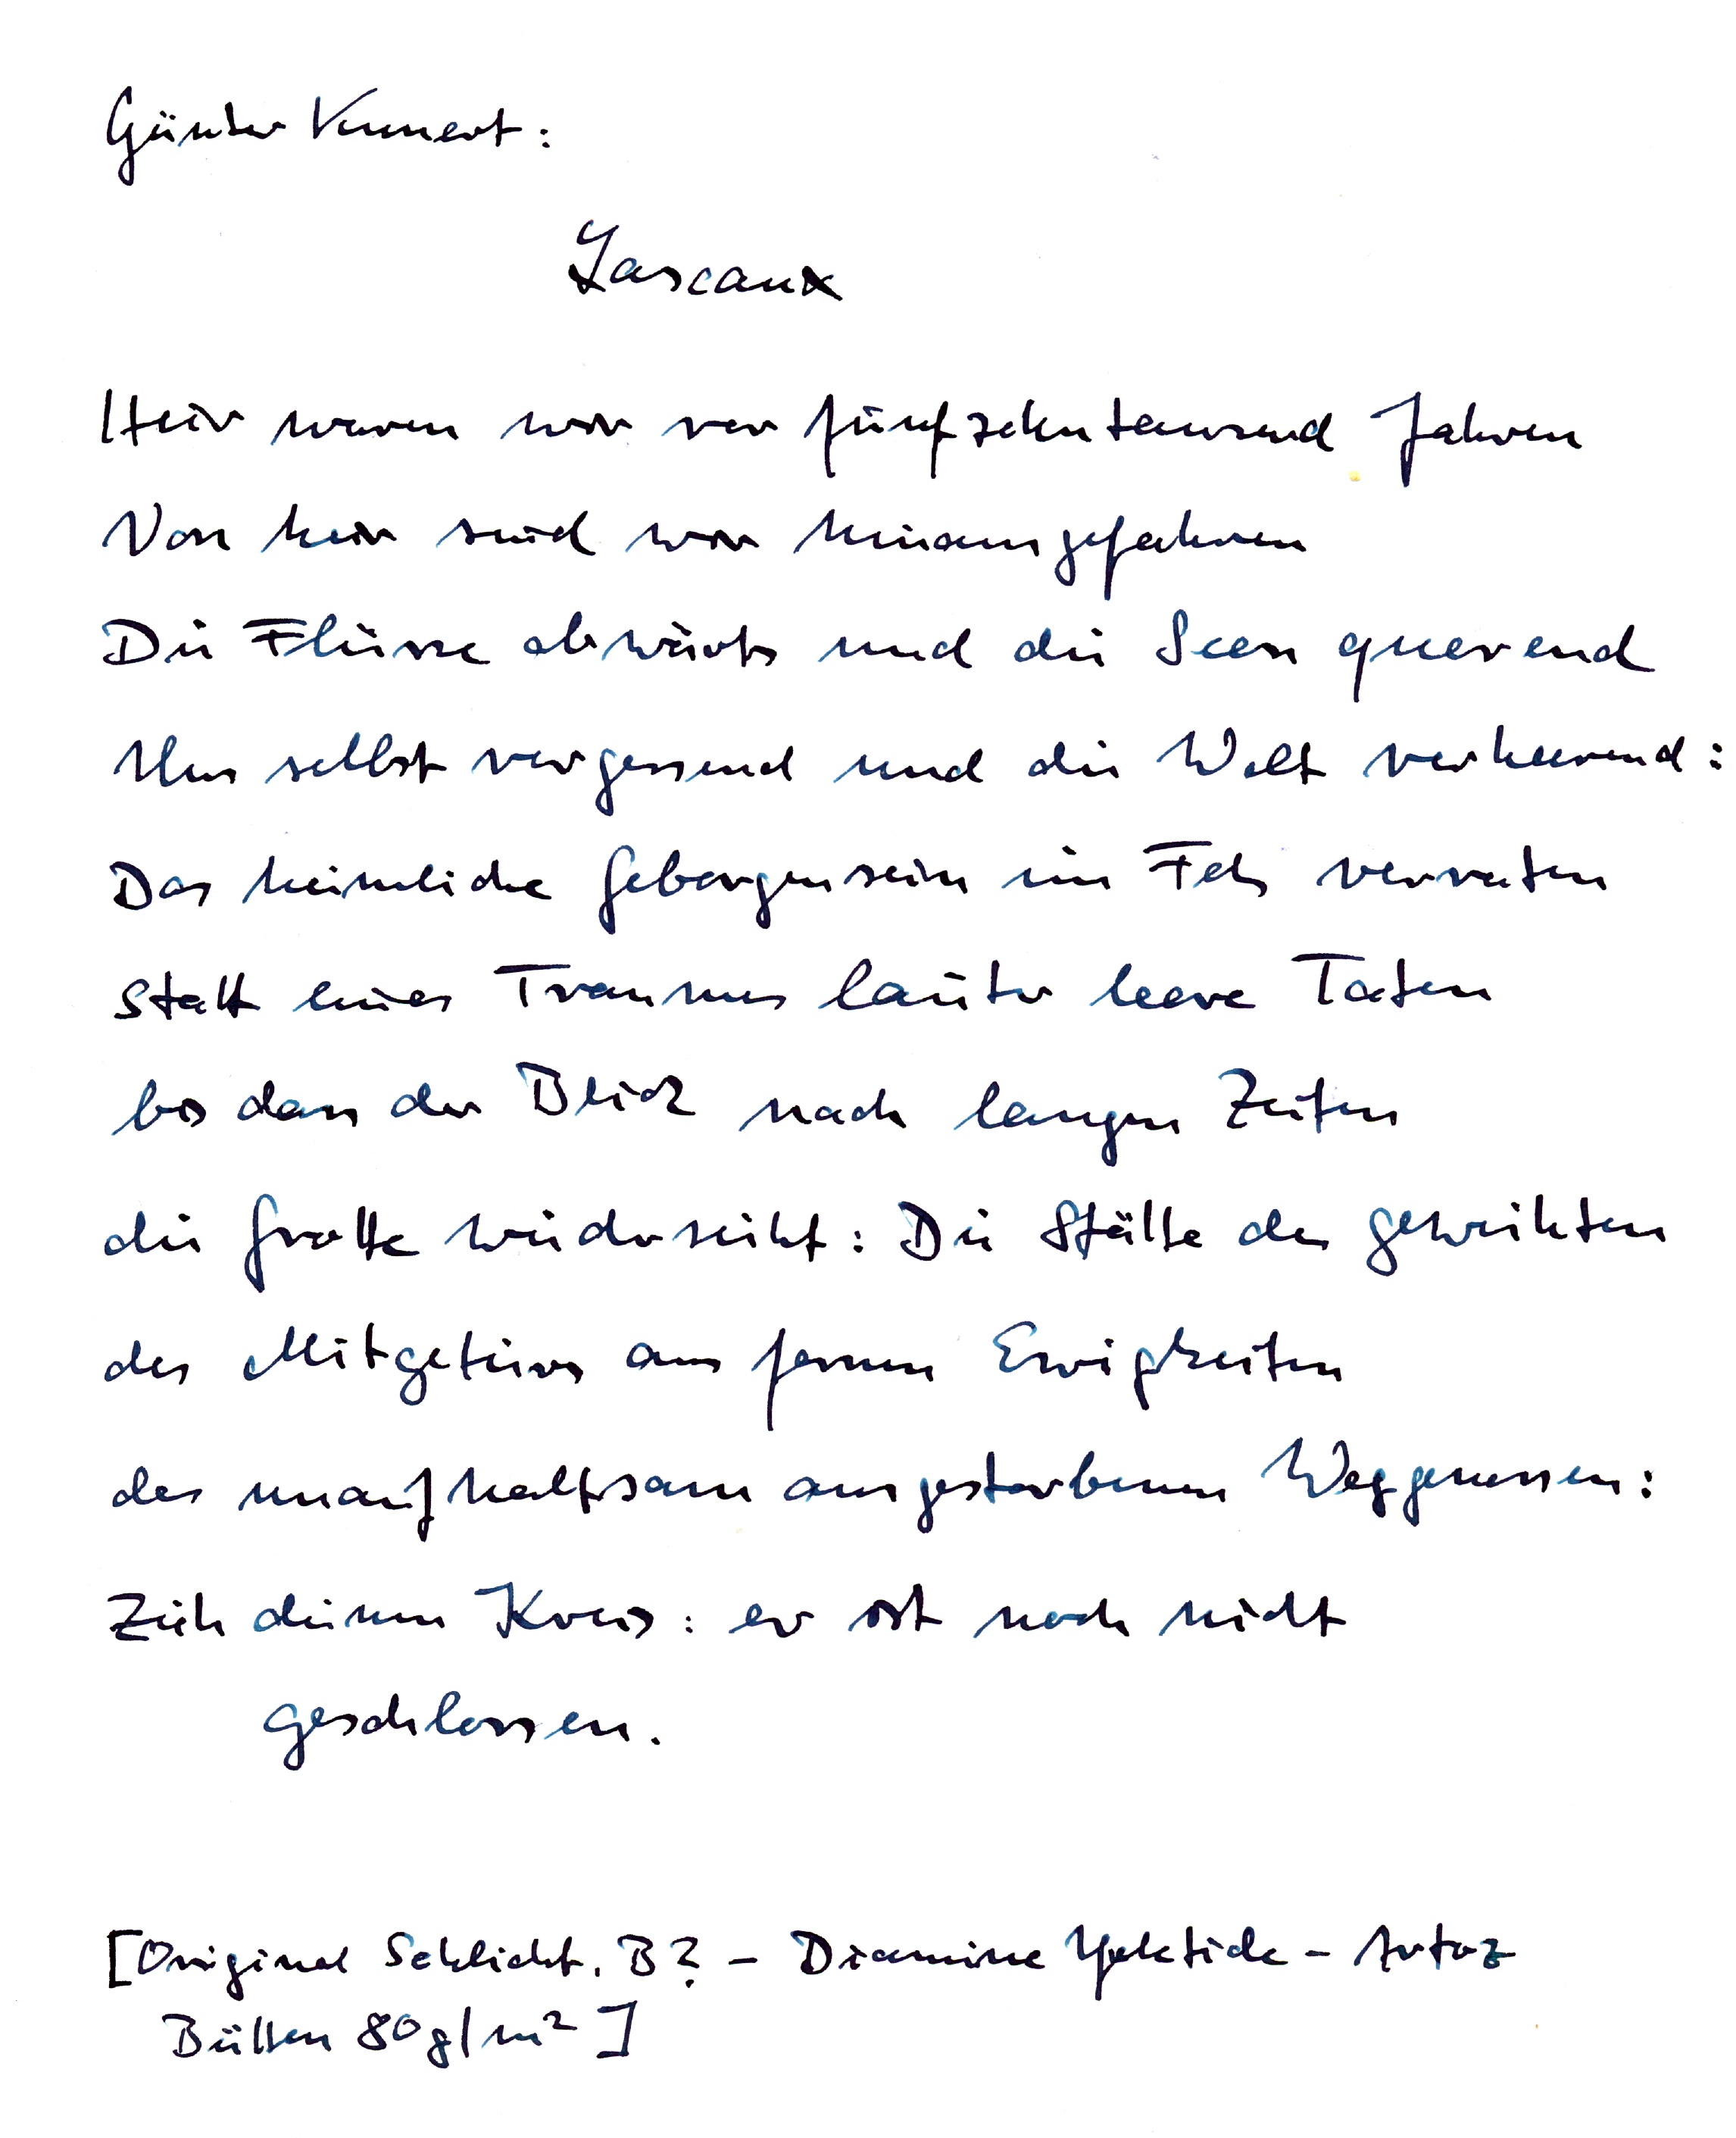 Günter Kunert:
Lascaux
Hier waren wir vor fünfzehntausend Jahren
Von hier sind wir hinausgefahren
Die Flüsse abwärts und die Seen querend
Uns selbst vergessend und die Welt verheerend:
Das heimliche Geborgensein im Fels verraten
statt eines Traumes lauter leere Taten
bis dass der Blick nach langen Zeiten
die Grotte wiedersieht: Die Stätte der geweihten
des Mitgetiers aus fernen Ewigkeiten
des unaufhaltsam ausgestorbenen Weggenossen:
Zieh deinen Kreis: er ist noch nicht
geschlossen.
[Original Schlicht. B? – Diamine – Artoz
Bütten 80g/m²]